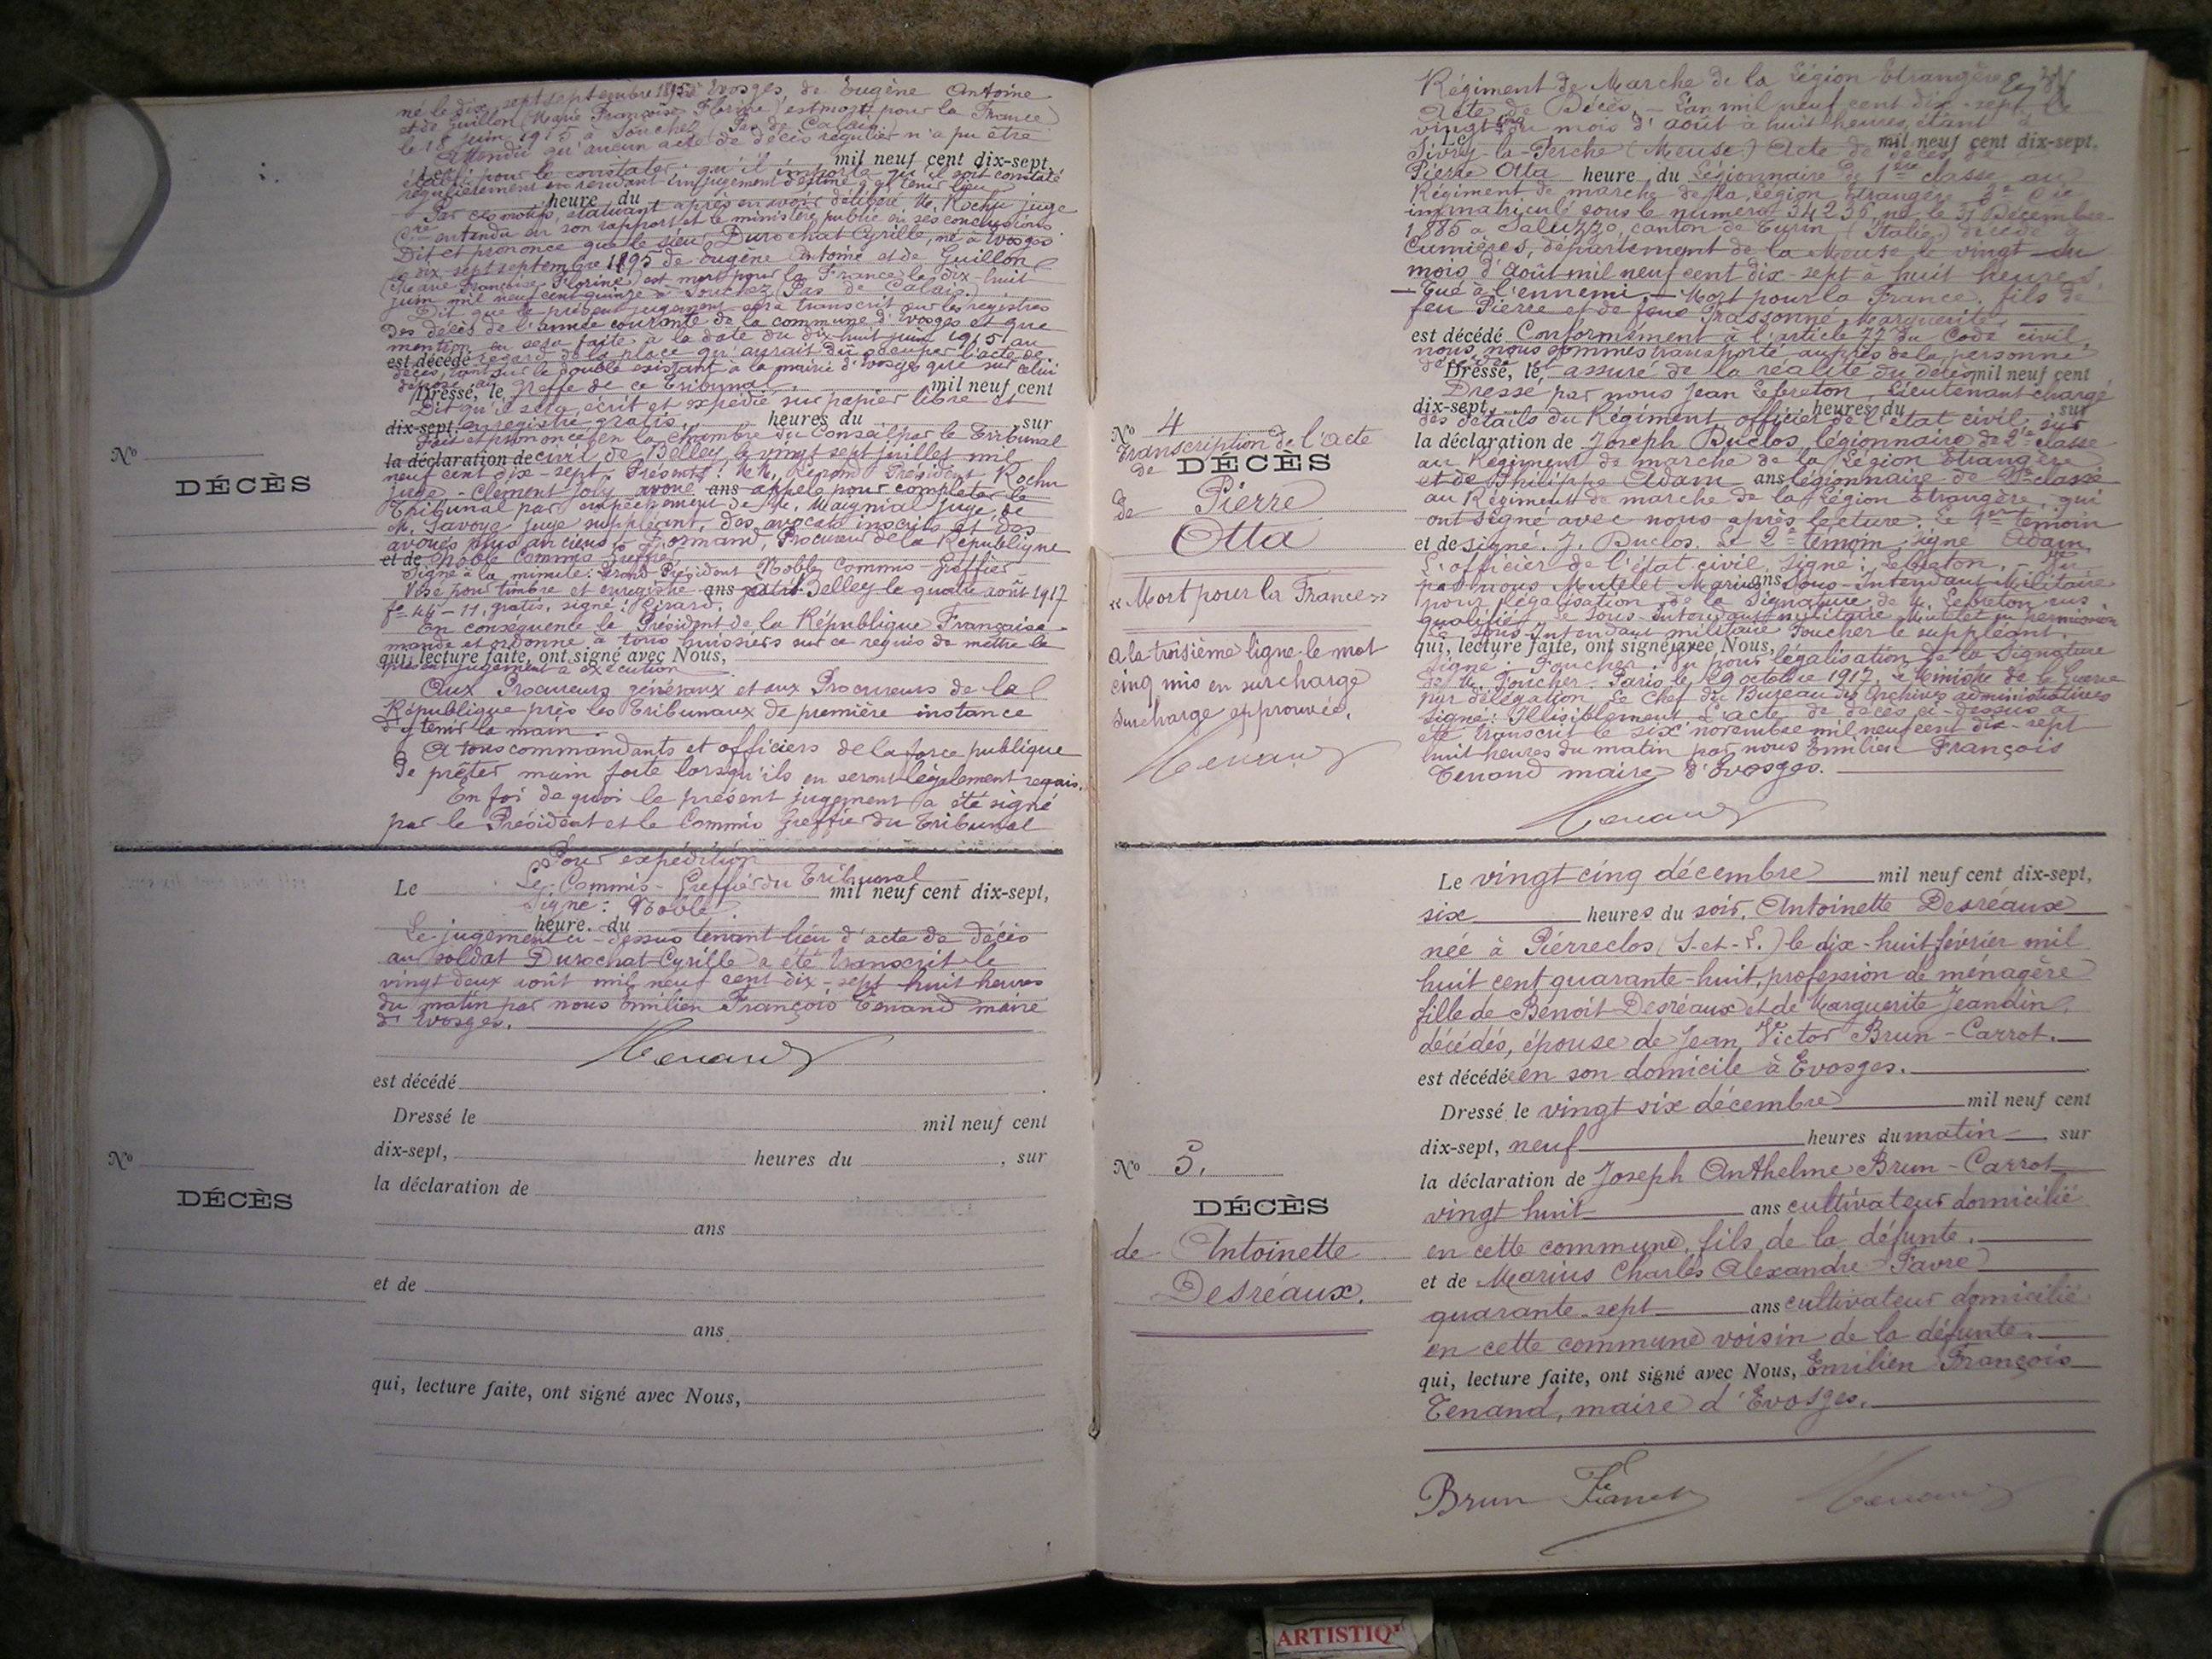 né le dix sept septembre 1895 à Evosges, de Eugène Antoine
et de Guillon (Marie Françoise Florine) est mort pour la France
le 18 juin 1915 à Souchez Pas de Calais.
Attendu qu'aucun acte de décès régulier n'a pu être
mil neuf cent dix-sept,
établi pour le constater ; qu'il importe qu'il soit constaté
régulièrement en rendant un jugement destiné à en tenir lieu
heure du
Par ces motifs, statuant après en avoir délibéré M. Rochu juge
Cre entendu en son rapport et le ministère public en ses conclusions
Dit et prononce que le sieur Durochat Cyrille, né à Evosges
le dix-sept septembre 1895 de Eugène Antoine et de Guillon
(Marie Françoise Florine) est mort pour la France le dix-huit
juin mil neuf cent quinze à Souchez (Pas de Calais.)
Dit que le présent jugement sera transcrit sur les registres
des décès de l'année courante de la commune d'Evosges et que
mention en sera faite à la date du dix-huit juin 1915 au
est décédé regard de la place qu'aurait dû occuper l'acte de
décès, tant sur le double existant à la mairie d'Evosges que sur celui
déposé au greffe de ce Tribunal.
Dressé, le mil neuf cent
Dit qu'il sera écrit et expédié sur papier libre et
dix-sept, enregistré gratis. heures du sur
Fait et prononcé en la Chambre du Conseil par le Tribunal
la déclaration de civil de Belley le vingt sept juillet mil
neuf cent dix-sept. Présents : M.M. Président Rochu
juge - Clément Joly avoué ans appelé pour compléter le
Tribunal par empêchement de M. Maignial juge, de
M. Savoye juge suppléant, des avocats inscrits et des
avoués plus anciens - Normand, Procureur de la République
et de Noble Commis Greffier
Signé à la minute : Président Noble Commis-Greffier
Visé pour timbre et enregistré ans gratis Belley le quatre août 1917
fo 44-11, gratis, signé : Girard.
En conséquence le Président de la République Française
mande et ordonne à tous huissiers sur ce requis de mettre le
qui, lecture faite, ont signé avec Nous,
présent jugement à exécution
Aux Procureurs généraux et aux Procureurs de la
République près les Tribunaux de première instance
d'y tenir la main.
A tous commandants et officiers de la force publique
de prêter main forte lorsqu'ils en seront légalement requis.
En foi de quoi le présent jugement a été signé
par le Président et le Commis Greffier du Tribunal
Pour expédition
Le Commis-Greffier du Tribunal
Le mil neuf cent dix-sept,
Signé : Noble
heure. du
Le jugement ci-dessus tenant lieu d'acte de décès
au soldat Durochat Cyrille a été transcrit le
vingt deux août mil neuf cent dix-sept huit heures
du matin par nous Emilien François Tenand maire
d'Evosges.
Tenand
est décédé
Dressé le mil neuf cent
dix-sept, heures du , sur
la déclaration de
ans
et de
ans
qui, lecture faite, ont signé avec Nous,
No
DÉCÈS
No
DÉCÈS
No 4
Transcription de l'acte
de DÉCÈS
de Pierre
Otta
« Mort pour la France »
A la troisième ligne le mot
cinq mis en surcharge
surcharge approuvée.
Tenand
Régiment de Marche de la Légion Etrangère
Acte de Décès. - L'an mil neuf cent dix-sept le
vingt cinq du mois d'août à huit heures, étant à
Le mil neuf cent dix-sept,
Sivry-la-Perche (Meuse.) Acte de décès de
Pierre Otta heure du Légionnaire de 1ère classe au
Régiment de marche de la Légion Etrangère 3e Cie
immatriculé sous le numéro 34236, né le 31 Décembre
1885 à Saluzzo, canton de Turin, (Italie) décédé à
Cumières, département de la Meuse le vingt du
mois d'août mil neuf cent dix-sept à huit heures,
- Tué à l'ennemi, - Mort pour la France, fils de
feu Pierre et de feue Marguerite
est décédé Conformément à l'article 77 du Code civil,
nous, nous sommes transporté auprès de la personne
décédée
Dressé, le, assuré de la réalité du décès mil neuf cent
Dressé par nous Jean Lebreton, Lieutenant chargé
dix-sept, heures du sur
des détails du Régiment, officier de l'état civil, sur
la déclaration de Joseph Buclos, légionnaire de 2e classe
au Régiment de marche de la Légion Etrangère
et de Philippe Adam ans légionnaire de classe
au Régiment de marche de la Légion Etrangère, qui
ont signé avec nous après lecture. Le 1er témoin
et de signé. J. Buclos. Le 2e témoin, signé Adam
L'officier de l'état civil. Signé : Lebreton. - Vu
par nous Mutelet Marius ans Sous-Intendant Militaire
pour légalisation de la signature de M. Lebreton sus
qualifié, le Sous-Intendant militaire Mutelet en permission
Le Sous-Intendant militaire Foucher le suppléant.
qui, lecture faite, ont signé avec Nous,
signé : Foucher. Vu pour légalisation de la signature
de M. Foucher. Paris le 29 octobre 1917. Le Ministre de la Guerre
par délégation Le Chef du Bureau des Archives administratives
signé : Illisiblement L'acte de décès ci-dessus a
été transcrit le six novembre mil neuf cent dix-sept
huit heures du matin par nous Emilien François
Tenand maire d'Evosges.
Tenand
No 5.
DÉCÈS
de Antoinette
Desréaux.
Le vingt cinq décembre mil neuf cent dix-sept,
six heures du soir, Antoinette Desréaux
née à Pierreclos (S-et-L.) le dix-huit février mil
huit cent quarante-huit, profession de ménagère
fille de Benoit Desréaux et de Marguerite Jeandin.
décédés, épouse de Jean Victor Brun-Carrot.
est décédée en son domicile à Evosges.
Dressé le vingt six décembre mil neuf cent
dix-sept, neuf heures du matin , sur
la déclaration de Joseph Anthelme Brun-Carrot
vingt huit ans cultivateur domicilié
en cette commune, fils de la défunte.
et de Marius Charles Alexandre Favre
quarante-sept ans cultivateur domicilié
en cette commune voisin de la défunte.
qui, lecture faite, ont signé avec Nous, Emilien François
Tenand, maire d'Evosges.
Brun Favre Tenand
ARTISTIQ